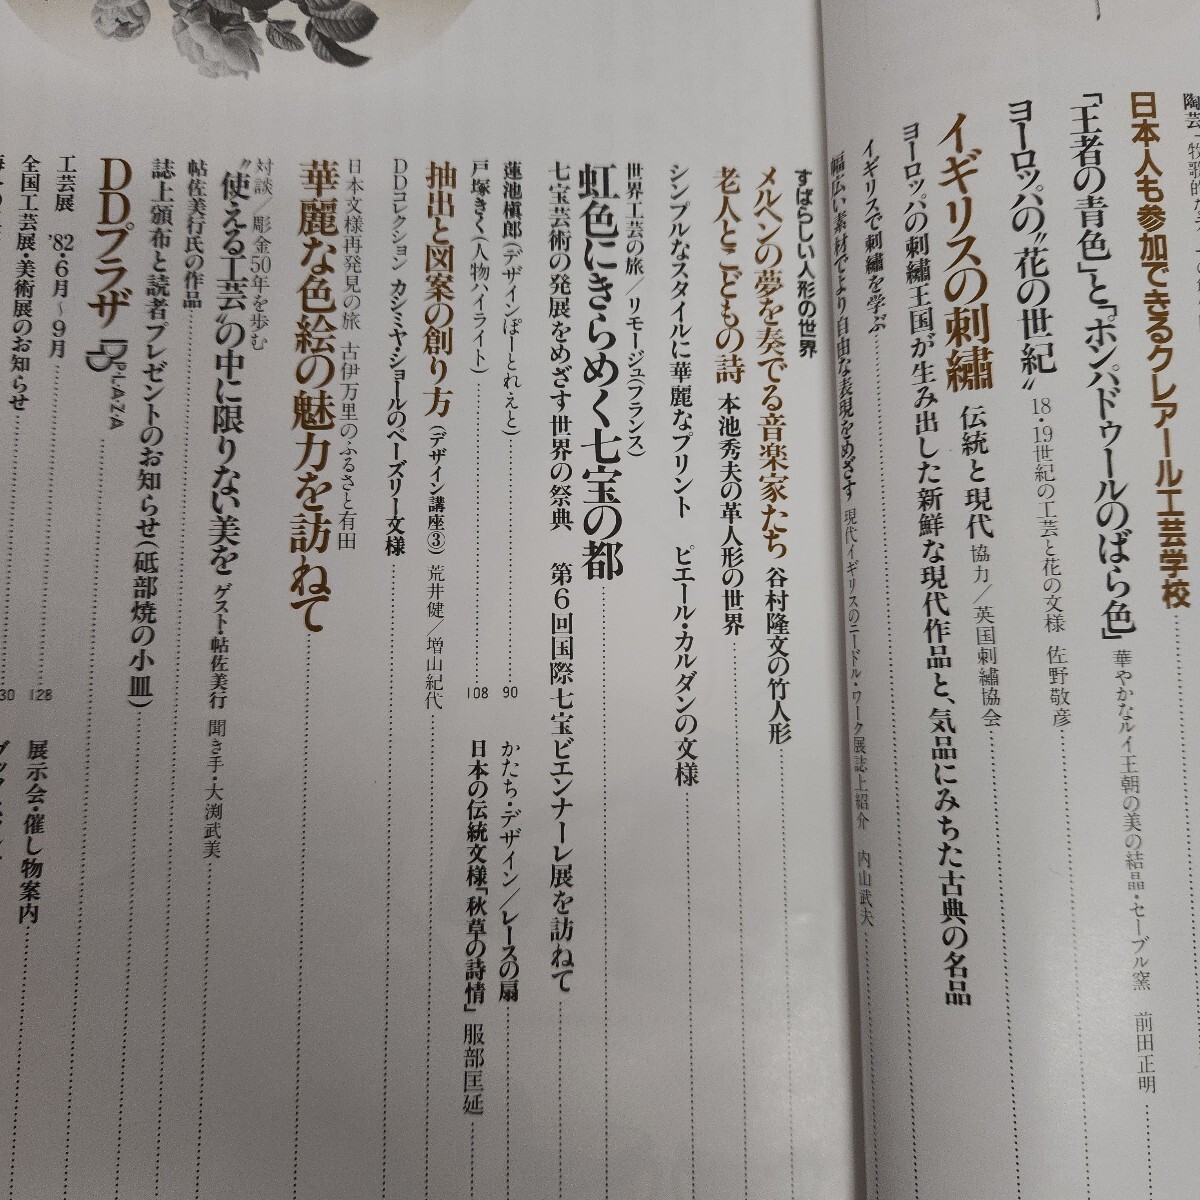 日本人も参加できるクレアール工芸学校
「王者の青色」と「ポンパドゥールのばら色」 華やかなルイ王朝の美の結晶・セーブル窯 前田正明
ヨーロッパの"花の世紀" 18・19世紀の工芸と花の文様 佐野敬彦
イギリスの刺繡 伝統と現代 協力/英国刺繡協会
ヨーロッパの刺繡王国が生み出した新鮮な現代作品と、気品にみちた古典の名品
イギリスで刺繡を学ぶ
幅広い素材でより自由な表現をめざす 現代イギリスのニードル・ワーク展誌上紹介 内山武夫
すばらしい人形の世界
メルヘンの夢を奏でる音楽家たち 谷村隆文の竹人形
老人とこどもの詩 本池秀夫の革人形の世界
シンプルなスタイルに華麗なプリント ピエール・カルダンの文様
世界工芸の旅/リモージュ(フランス)
虹色にきらめく七宝の都
七宝芸術の発展をめざす世界の祭典 第6回国際七宝ビエンナーレ展を訪ねて
蓮池槇郎(デザインぽーとれえと) 90
かたち・デザイン/レースの扇
戸塚きく(人物ハイライト) 108
日本の伝統文様「秋草の詩情」 服部匡延
抽出と図案の創り方 (デザイン講座③) 荒井健/増山紀代
DDコレクション カシミヤ・ショールのペーズリー文様
日本文様再発見の旅 古伊万里のふるさと有田
華麗な色絵の魅力を訪ねて
対談/彫金50年を歩む
"使える工芸"の中に限りない美を ゲスト・帖佐美行 聞き手・大渕武美
帖佐美行氏の作品
誌上頒布と読者プレゼントのお知らせ(砥部焼の小皿)
DDプラザ DD PLAZA
工芸展 '82・6月〜9月
全国工芸展・美術展のお知らせ 128
展示会・催し物案内
30